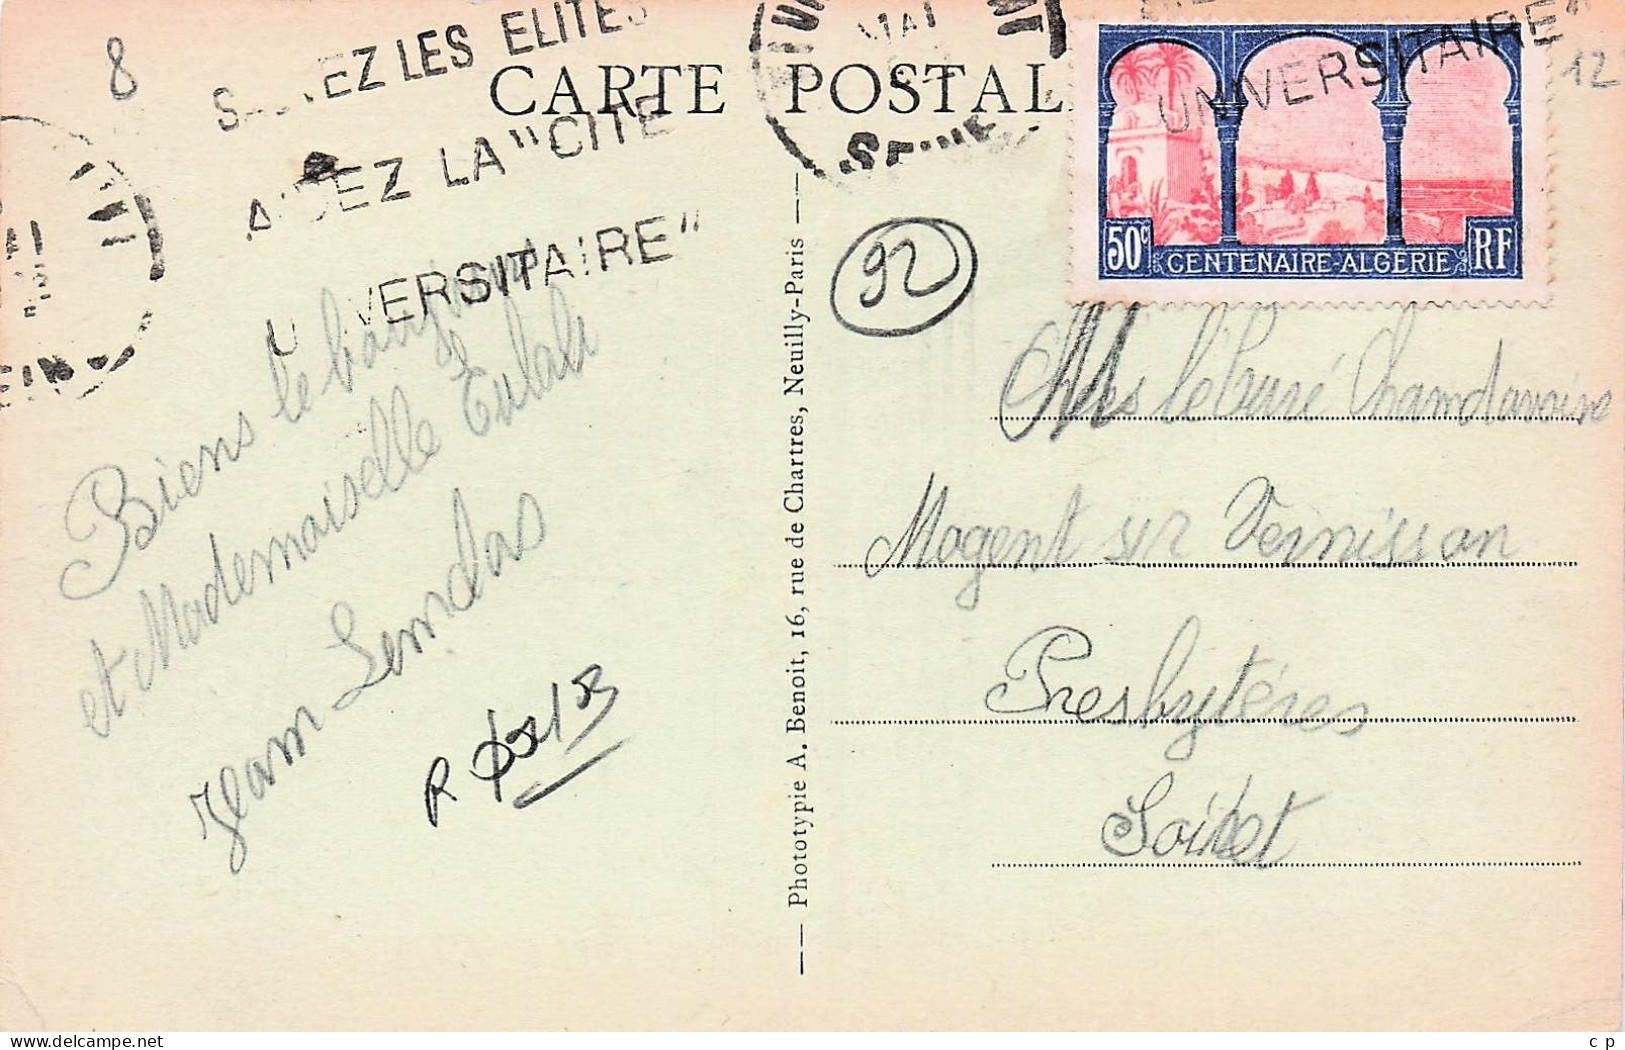 8
LES ELITES
AIDEZ LA "CITE
UNIVERSITAIRE"
CARTE POSTAL
MAI
SEINE
UNIVERSITAIRE"
12
50c
CENTENAIRE-ALGÉRIE
RF
92
Biens le
et Mademoiselle Eulali
Jeam Lemdas
R
Phototypie A. Benoit, 16, rue de Chartres, Neuilly-Paris
le Curé Chamdavoine
Mogent sur Vernisson
Presbytéres
Loiret